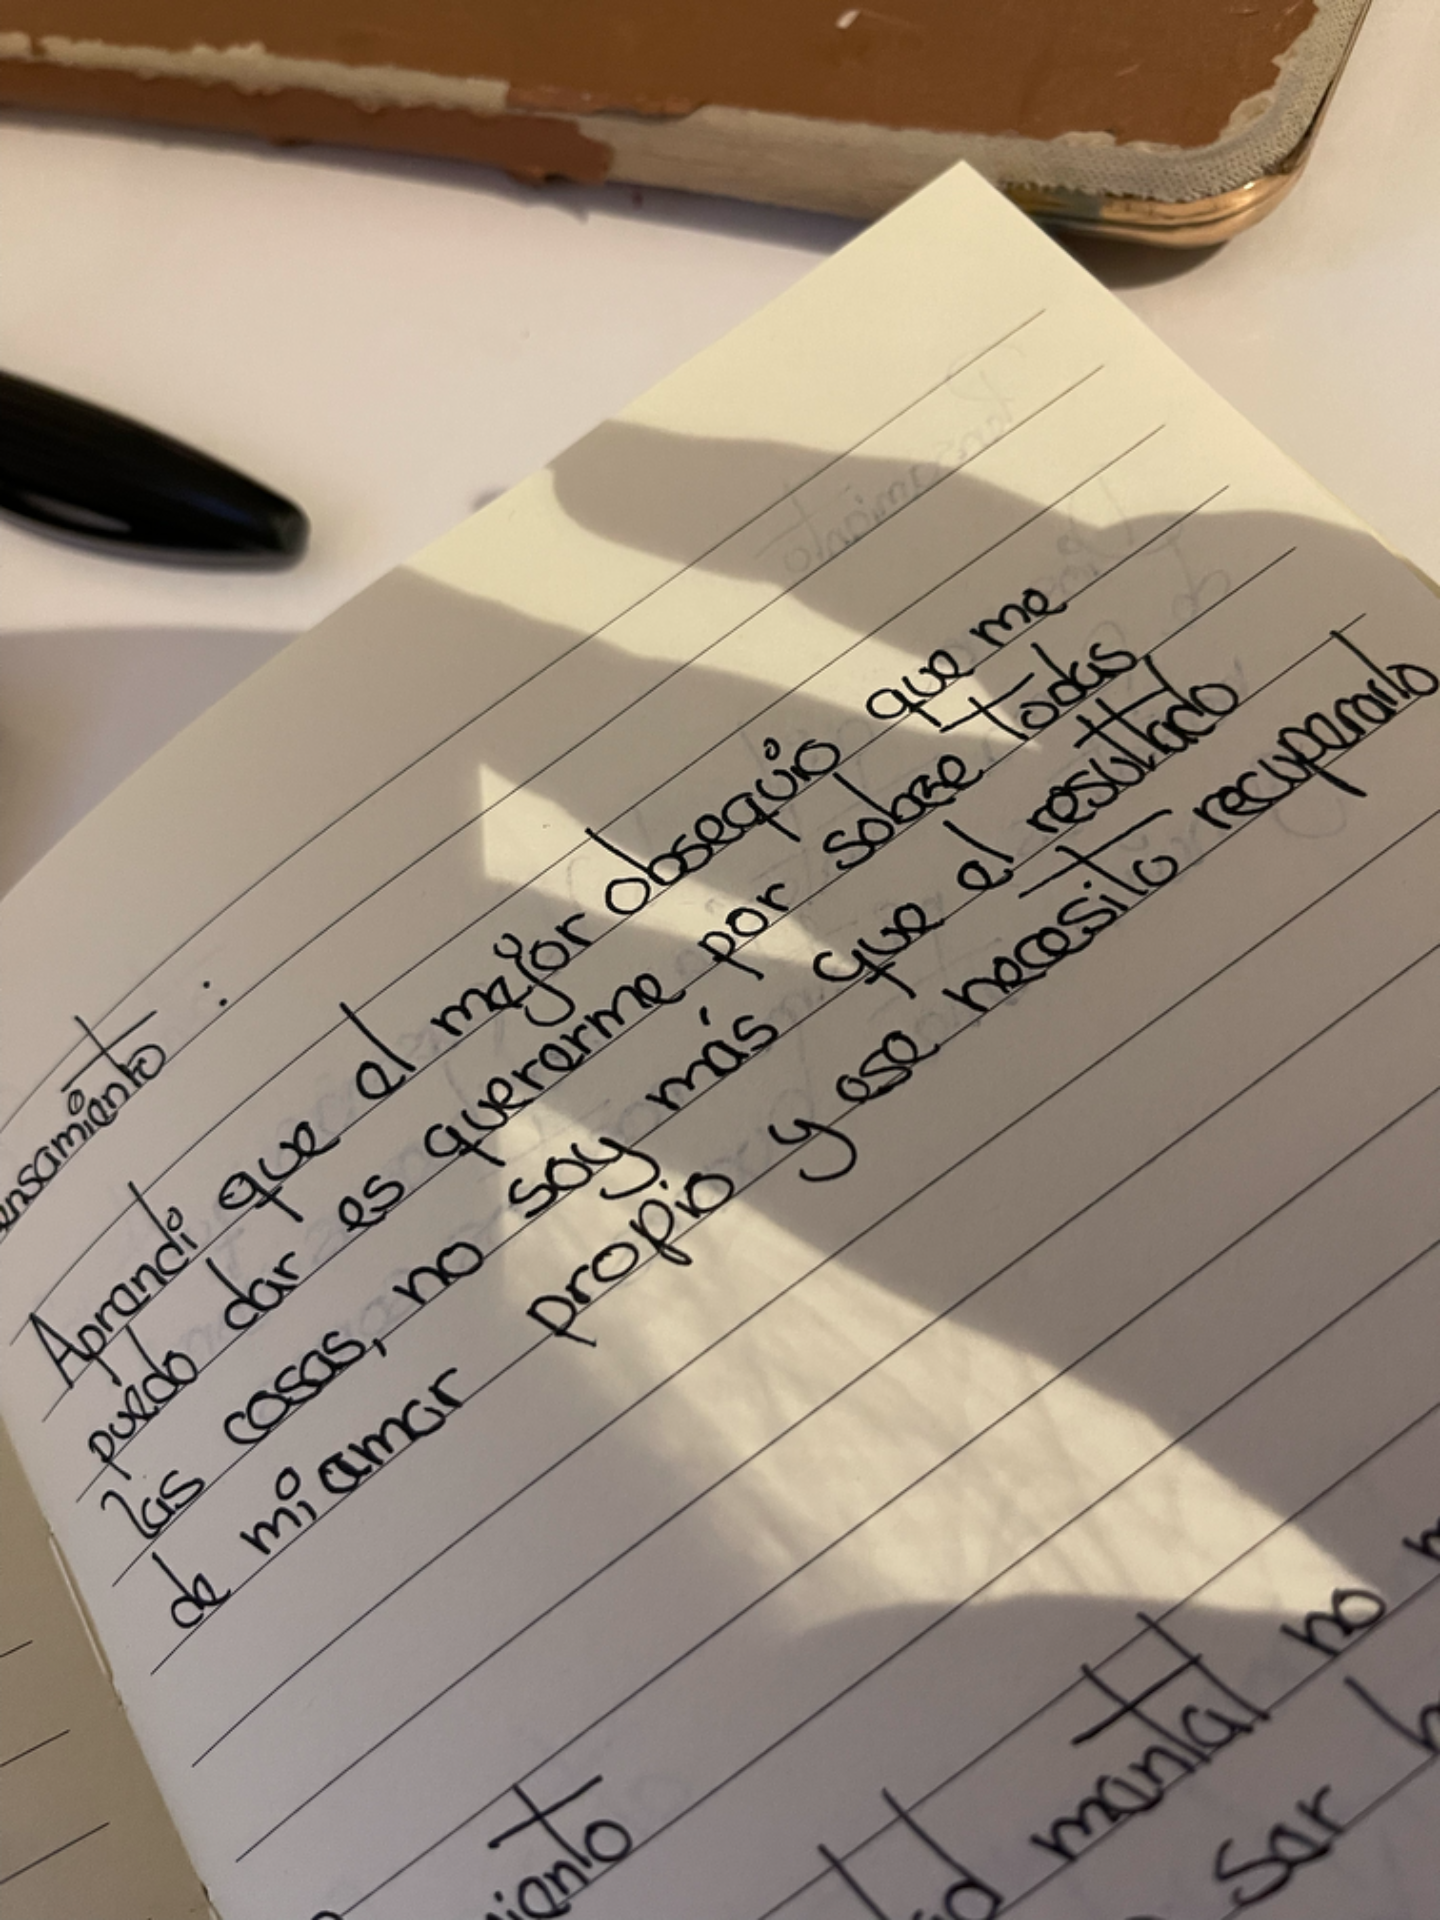 ensamiento :
Aprendi que el mejor obsequio que me
puedo dar es quererme por sobre todas
las cosas, no soy más que el resultado
de mi amor propio y ese necesito recuperarlo
iento
mental no
sar